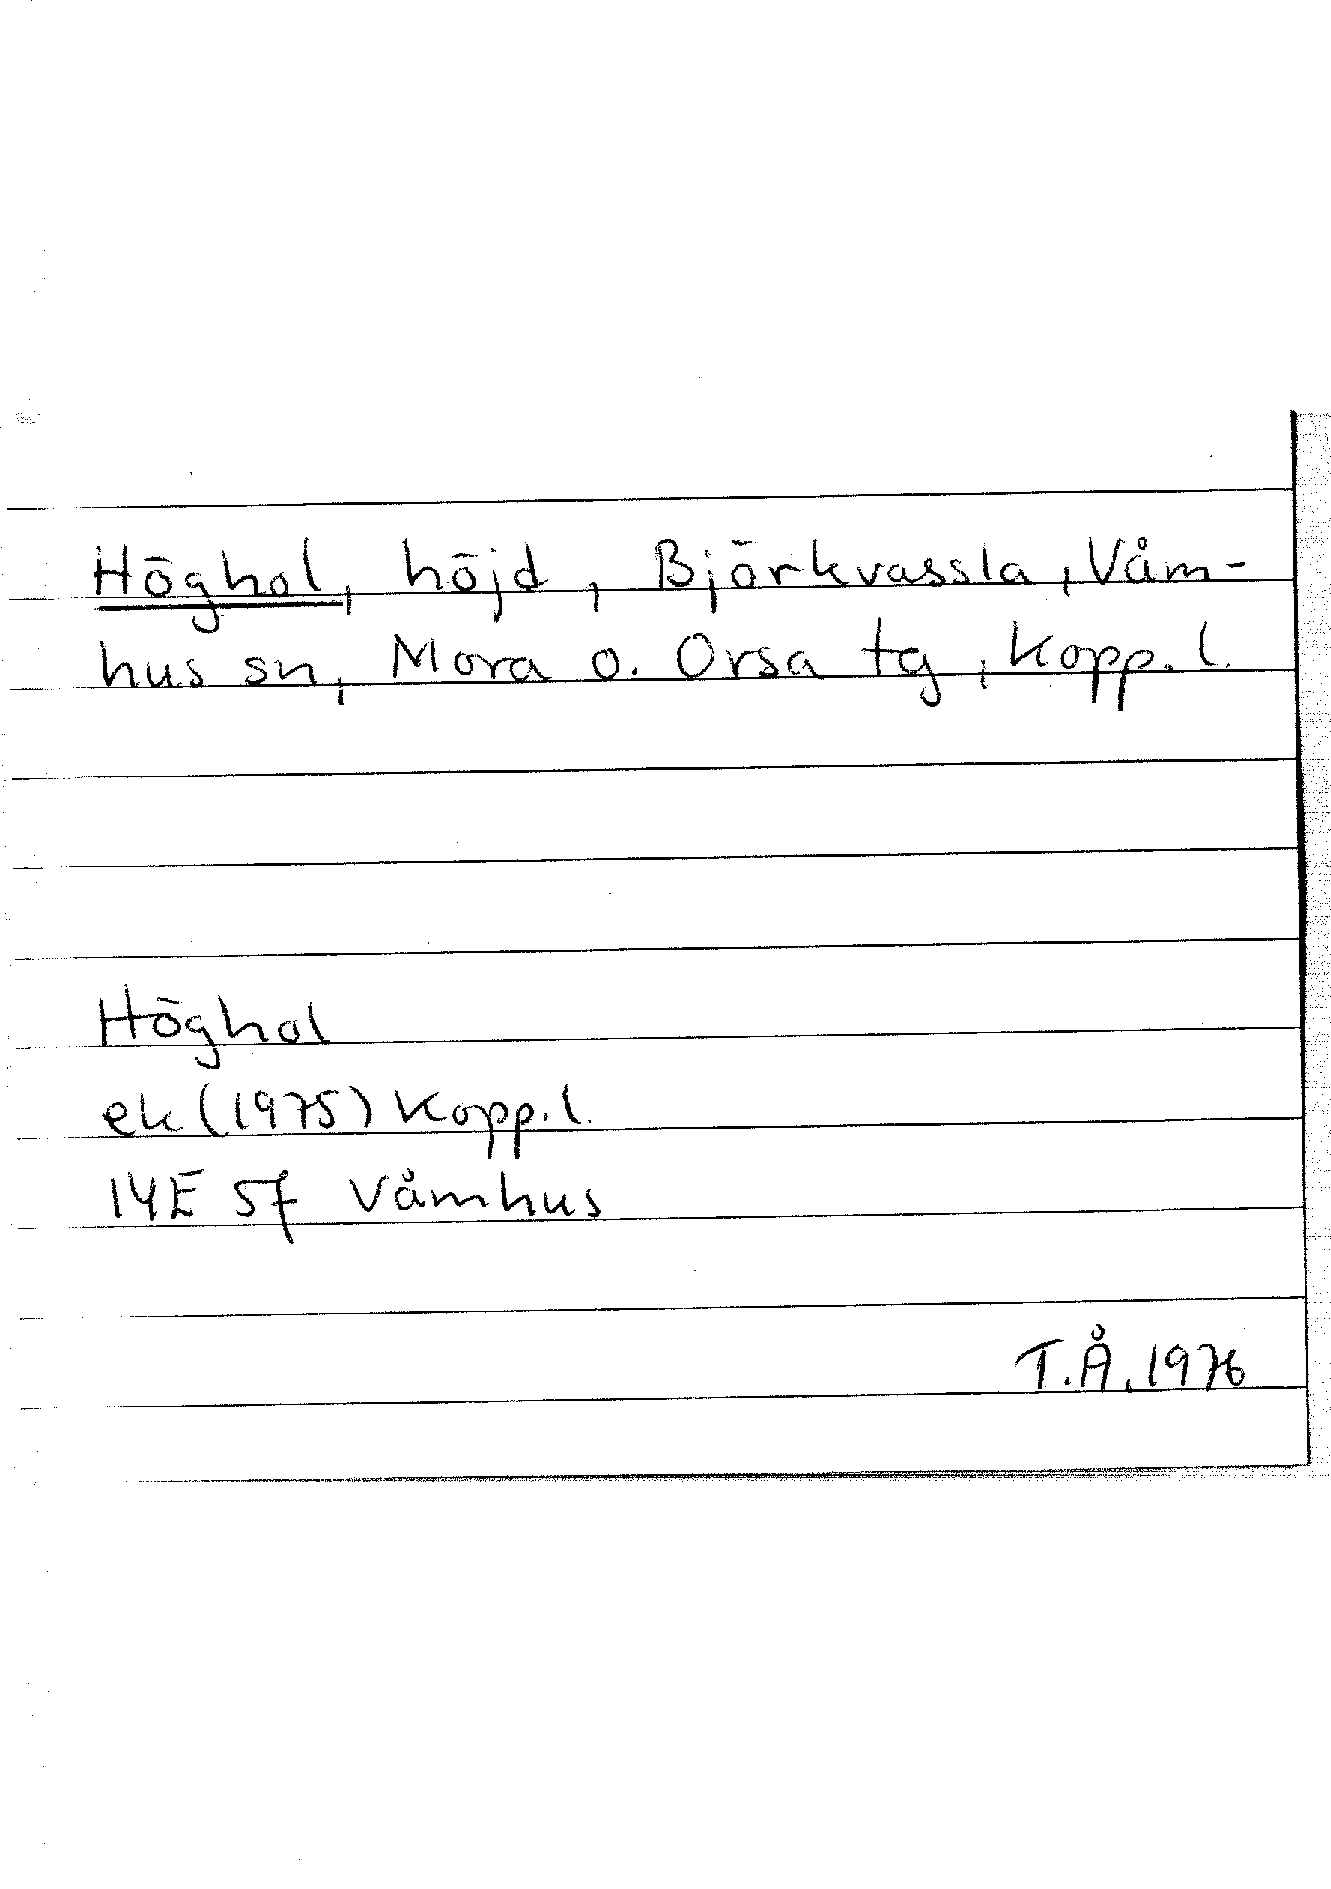 Höghol, höjd, Björkvassla, Våm-
hus sn, Mora o. Orsa tg, Kopp. l.
Höghol
ek (1975) Kopp. l.
14E 5f Våmhus
T.Å. 1976